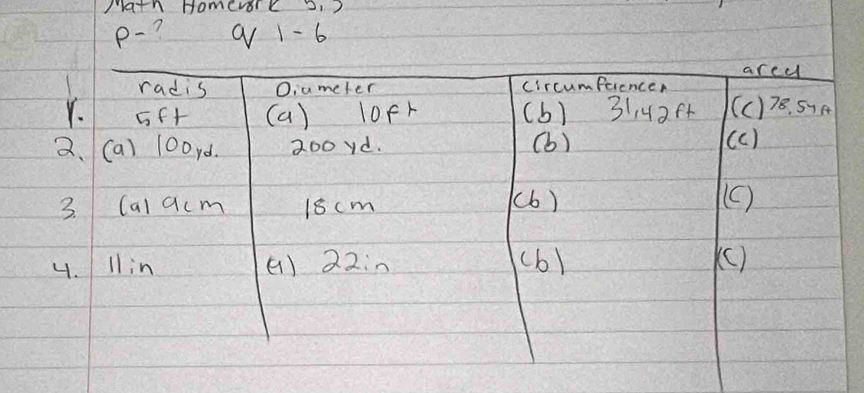 Math Homework 5,3
p-? q 1-6
radis Diameter circumferencer area
1. 5ft (a) 10ft (b) 31,42ft (c) 78,54ft
2. (a) 100yd. 200 yd. (b) (c)
3 (a) 9cm 18cm (b) (c)
4. 11in (a) 22in (b) (c)